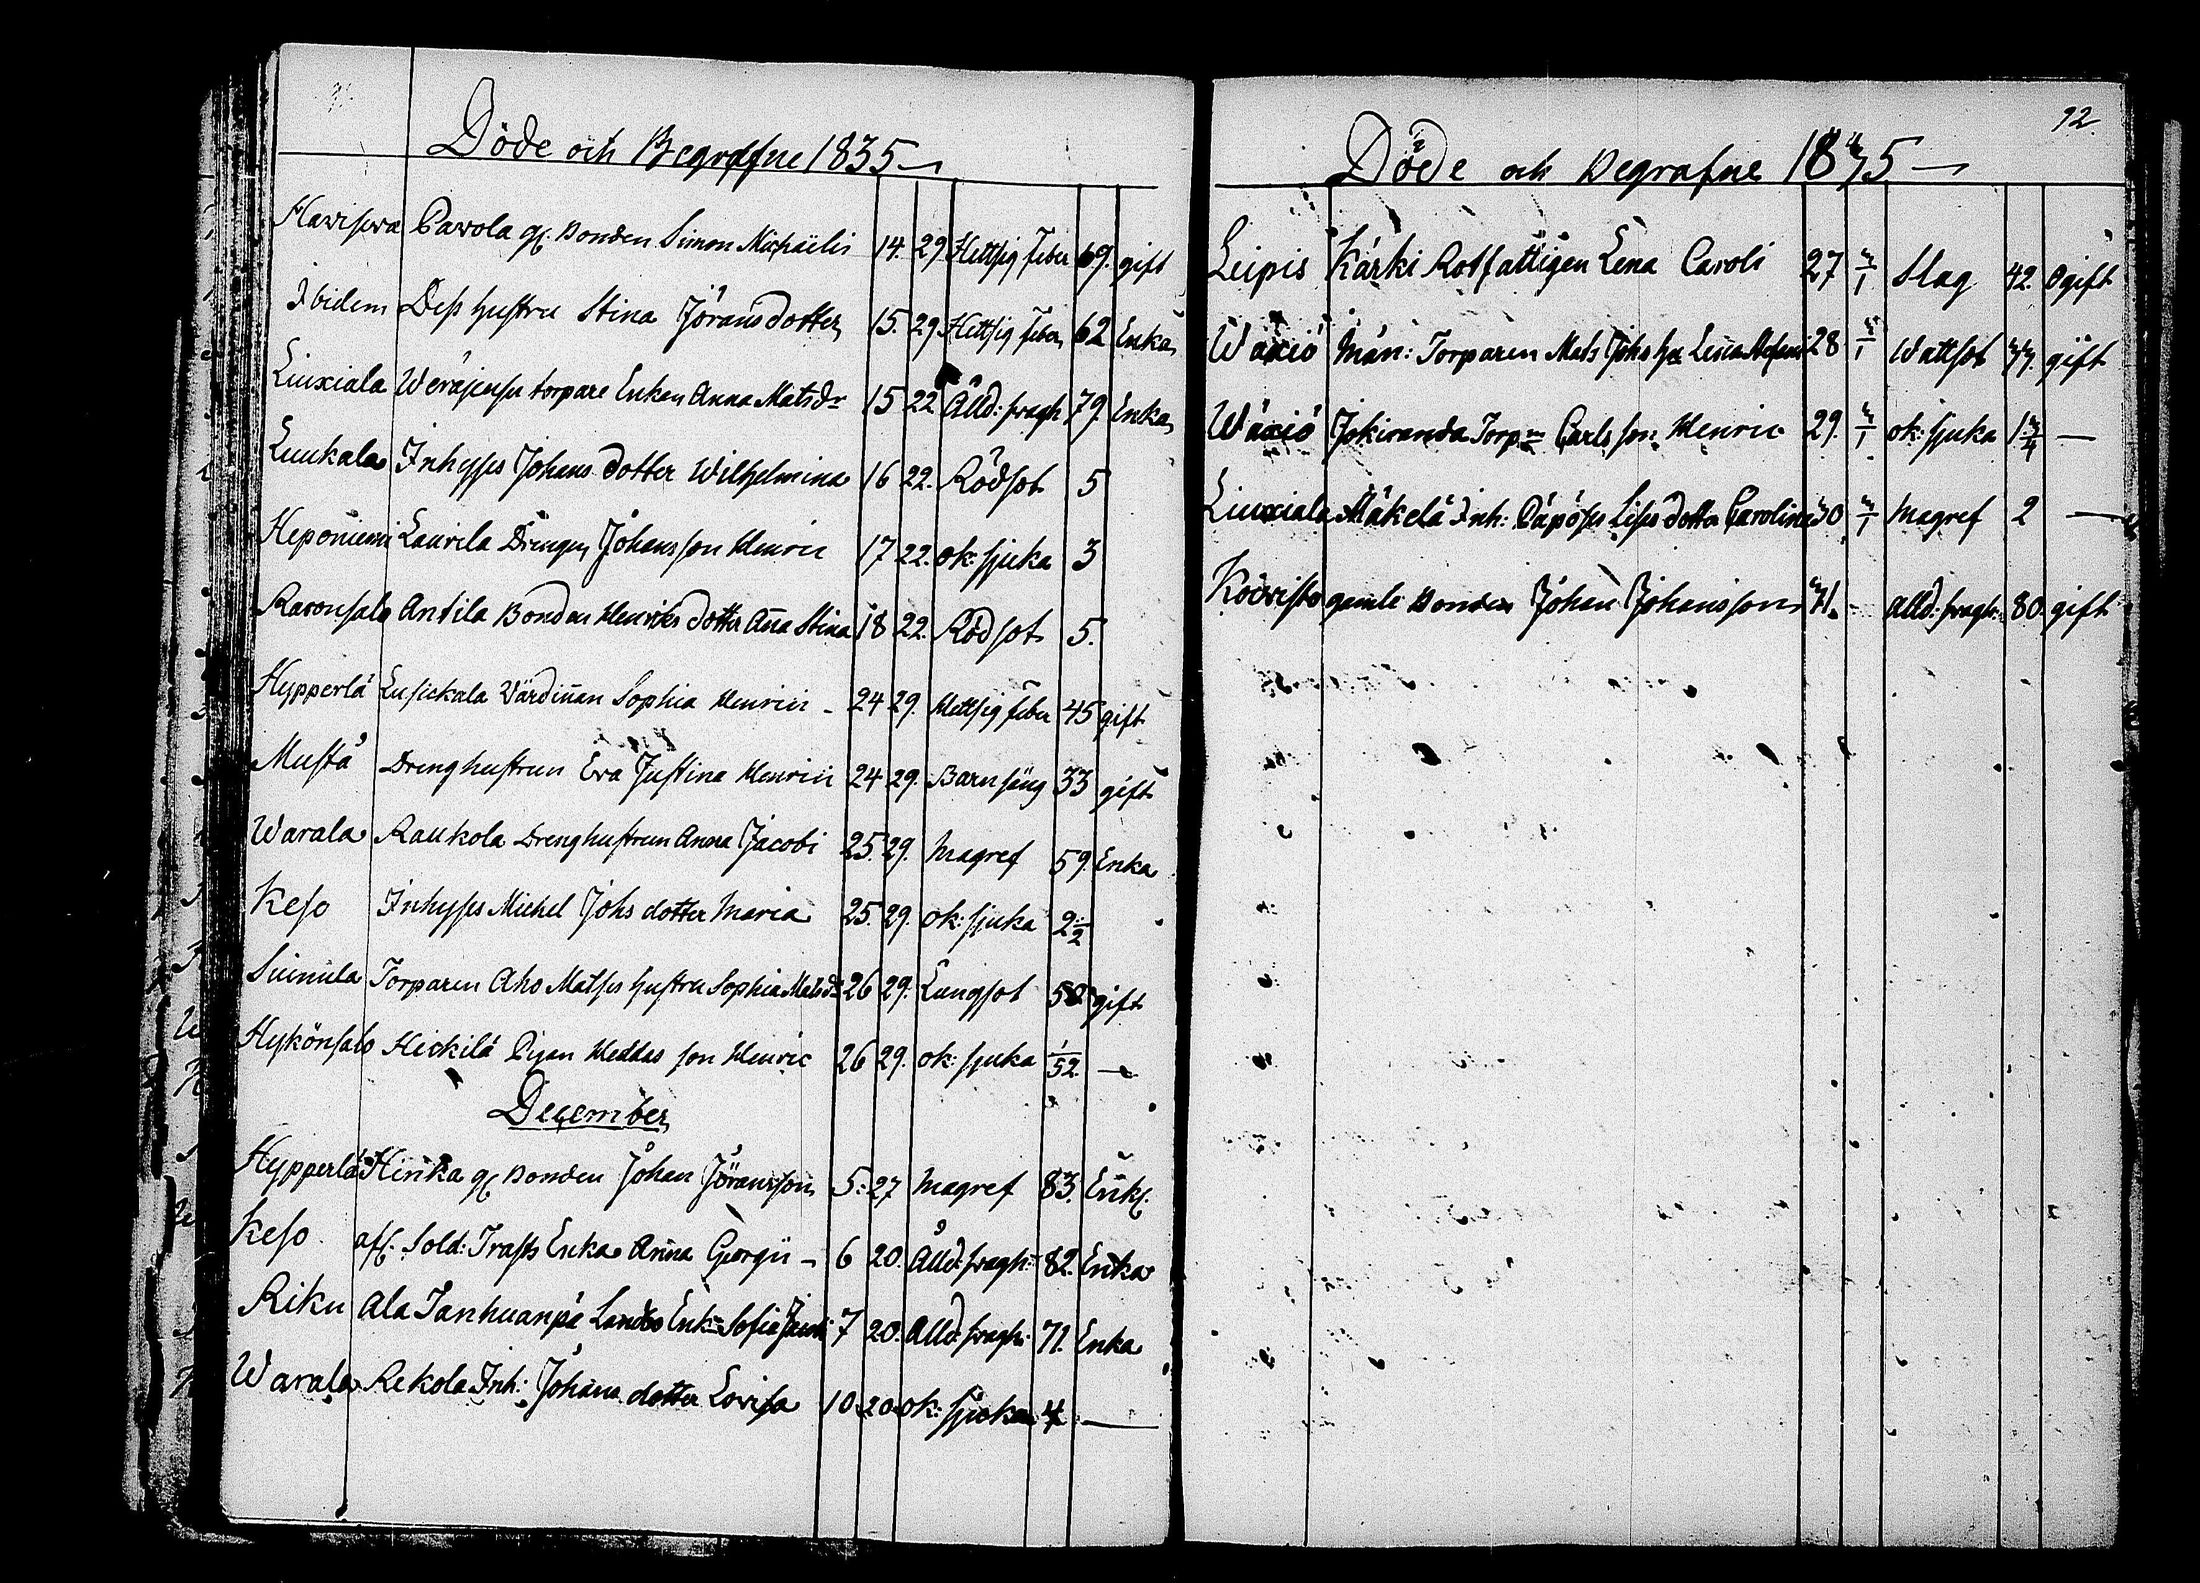 Döde och Begrafne 1835
Havisova Pavola gl. Bonden Simon Michäelis 14. 29. Hettsig feber 69. gift
Ibidem Dess hustru Stina Jöransdotter 15. 29 Hettsig feber 62 Enka
Liuxiala Weräjensu torpare Enkan Anna Matsdr 15 22 Ålld: svagh 79. Enka
Luukala Inhyses Johans dotter Wilhelmina 16 22. Rödsot 5
Heponiemi Laurila Drengen Johans son Henric 17 22. ok: sjuka 3
Raronsalo Antila Bonden Henriks dotter Aña Stina 18 22. Rödsot 5.
Hypperlä Lusickala Värdiñan Sophia Henrici - 24 29. Hettsig feber 45 gift
Musta Drenghustrun Eva Justina Henrici 24 29. Barnsäng 33 gift
Warala Raukola Drenghustrun Anna Jacobi 25. 29. Magref 59. Enka
Keso Inhyses Michel Johs dotter Maria 25. 29. ok: sjuka 2 1/2
Suinula Torparen Aho Matses hustru Sophia Matsdr 26 29. Lungsot gift
Hykönsalo Heickilä Pigan Heddas son Henric 26 29. ok: sjuka 1/52. —
December
Hypperlä Hirika gl Bonden Johan Jöransson 5. 27 Magref 83. Enkl.
Keso afl: Sold: Trasts Enka Anna Georgii - 6 20. Ålld: svagh: 82. Enka
Riku Ala Tanhuanpä Lands Enk: Sofia Jacobi 7 20. Alld: svagh: 71. Enka
Warala Rekola Inh: Johans dotter Lovisa 10. 20. ok: sjuka 4 —
92.
Döde och Begrafne 1835
Leipis Kärki Rotfattigen Lena Caroli 27 3/1 Slag 42. Ogift
Wäxiö Män: Torparen Mats Johs hu 28 3/1 Wattsot 33. gift
Wäxiö Jokiranda Torp: Carls son Henric 29. 3/1 ok: sjuka 1 3/4 —
Liuxiala Mäkelä Inh: Päpöses Lises dotter Carolina 30 3/1 Magref 2 —
Koivisto gamle Bonden Johan Johansson 31. - Alld: svagh: 80. gift